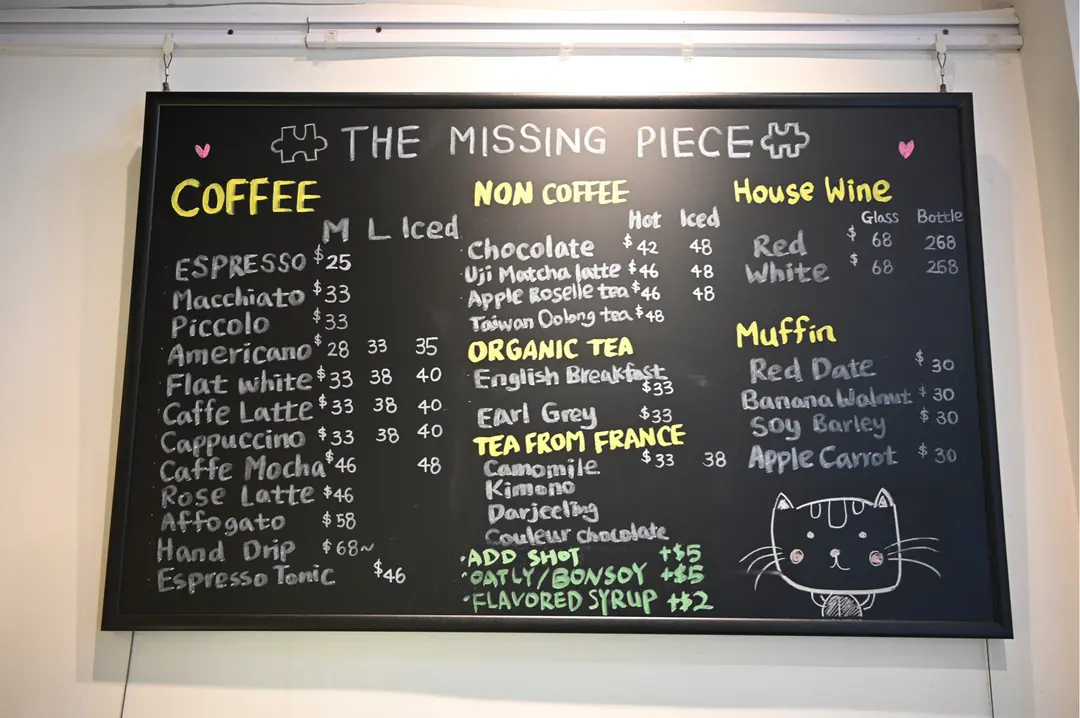 THE MISSING PIECE
COFFEE
M L Iced
ESPRESSO $25
Macchiato $33
Piccolo $33
Americano $28 33 35
Flat white $33 38 40
Caffe Latte $33 38 40
Cappuccino $33 38 40
Caffe Mocha $46 48
Rose Latte $46
Affogato $58
Hand Drip $68~
Espresso Tonic $46
NON COFFEE
Hot Iced
Chocolate $42 48
Uji Matcha latte $46 48
Apple Roselle tea $46 48
Taiwan Oolong tea $48
ORGANIC TEA
English Breakfast
$33
EArl Grey $33
TEA FROM FRANCE
Camomile $33 38
Kimono
Darjeeling
Couleur chocolate
·ADD SHOT +$5
·OATLY/BONSOY +$5
·FLAVORED SYRUP +$2
House Wine
Glass Bottle
Red $68 268
White $68 268
Muffin
Red Date $30
Banana Walnut $30
Soy Barley $30
Apple Carrot $30